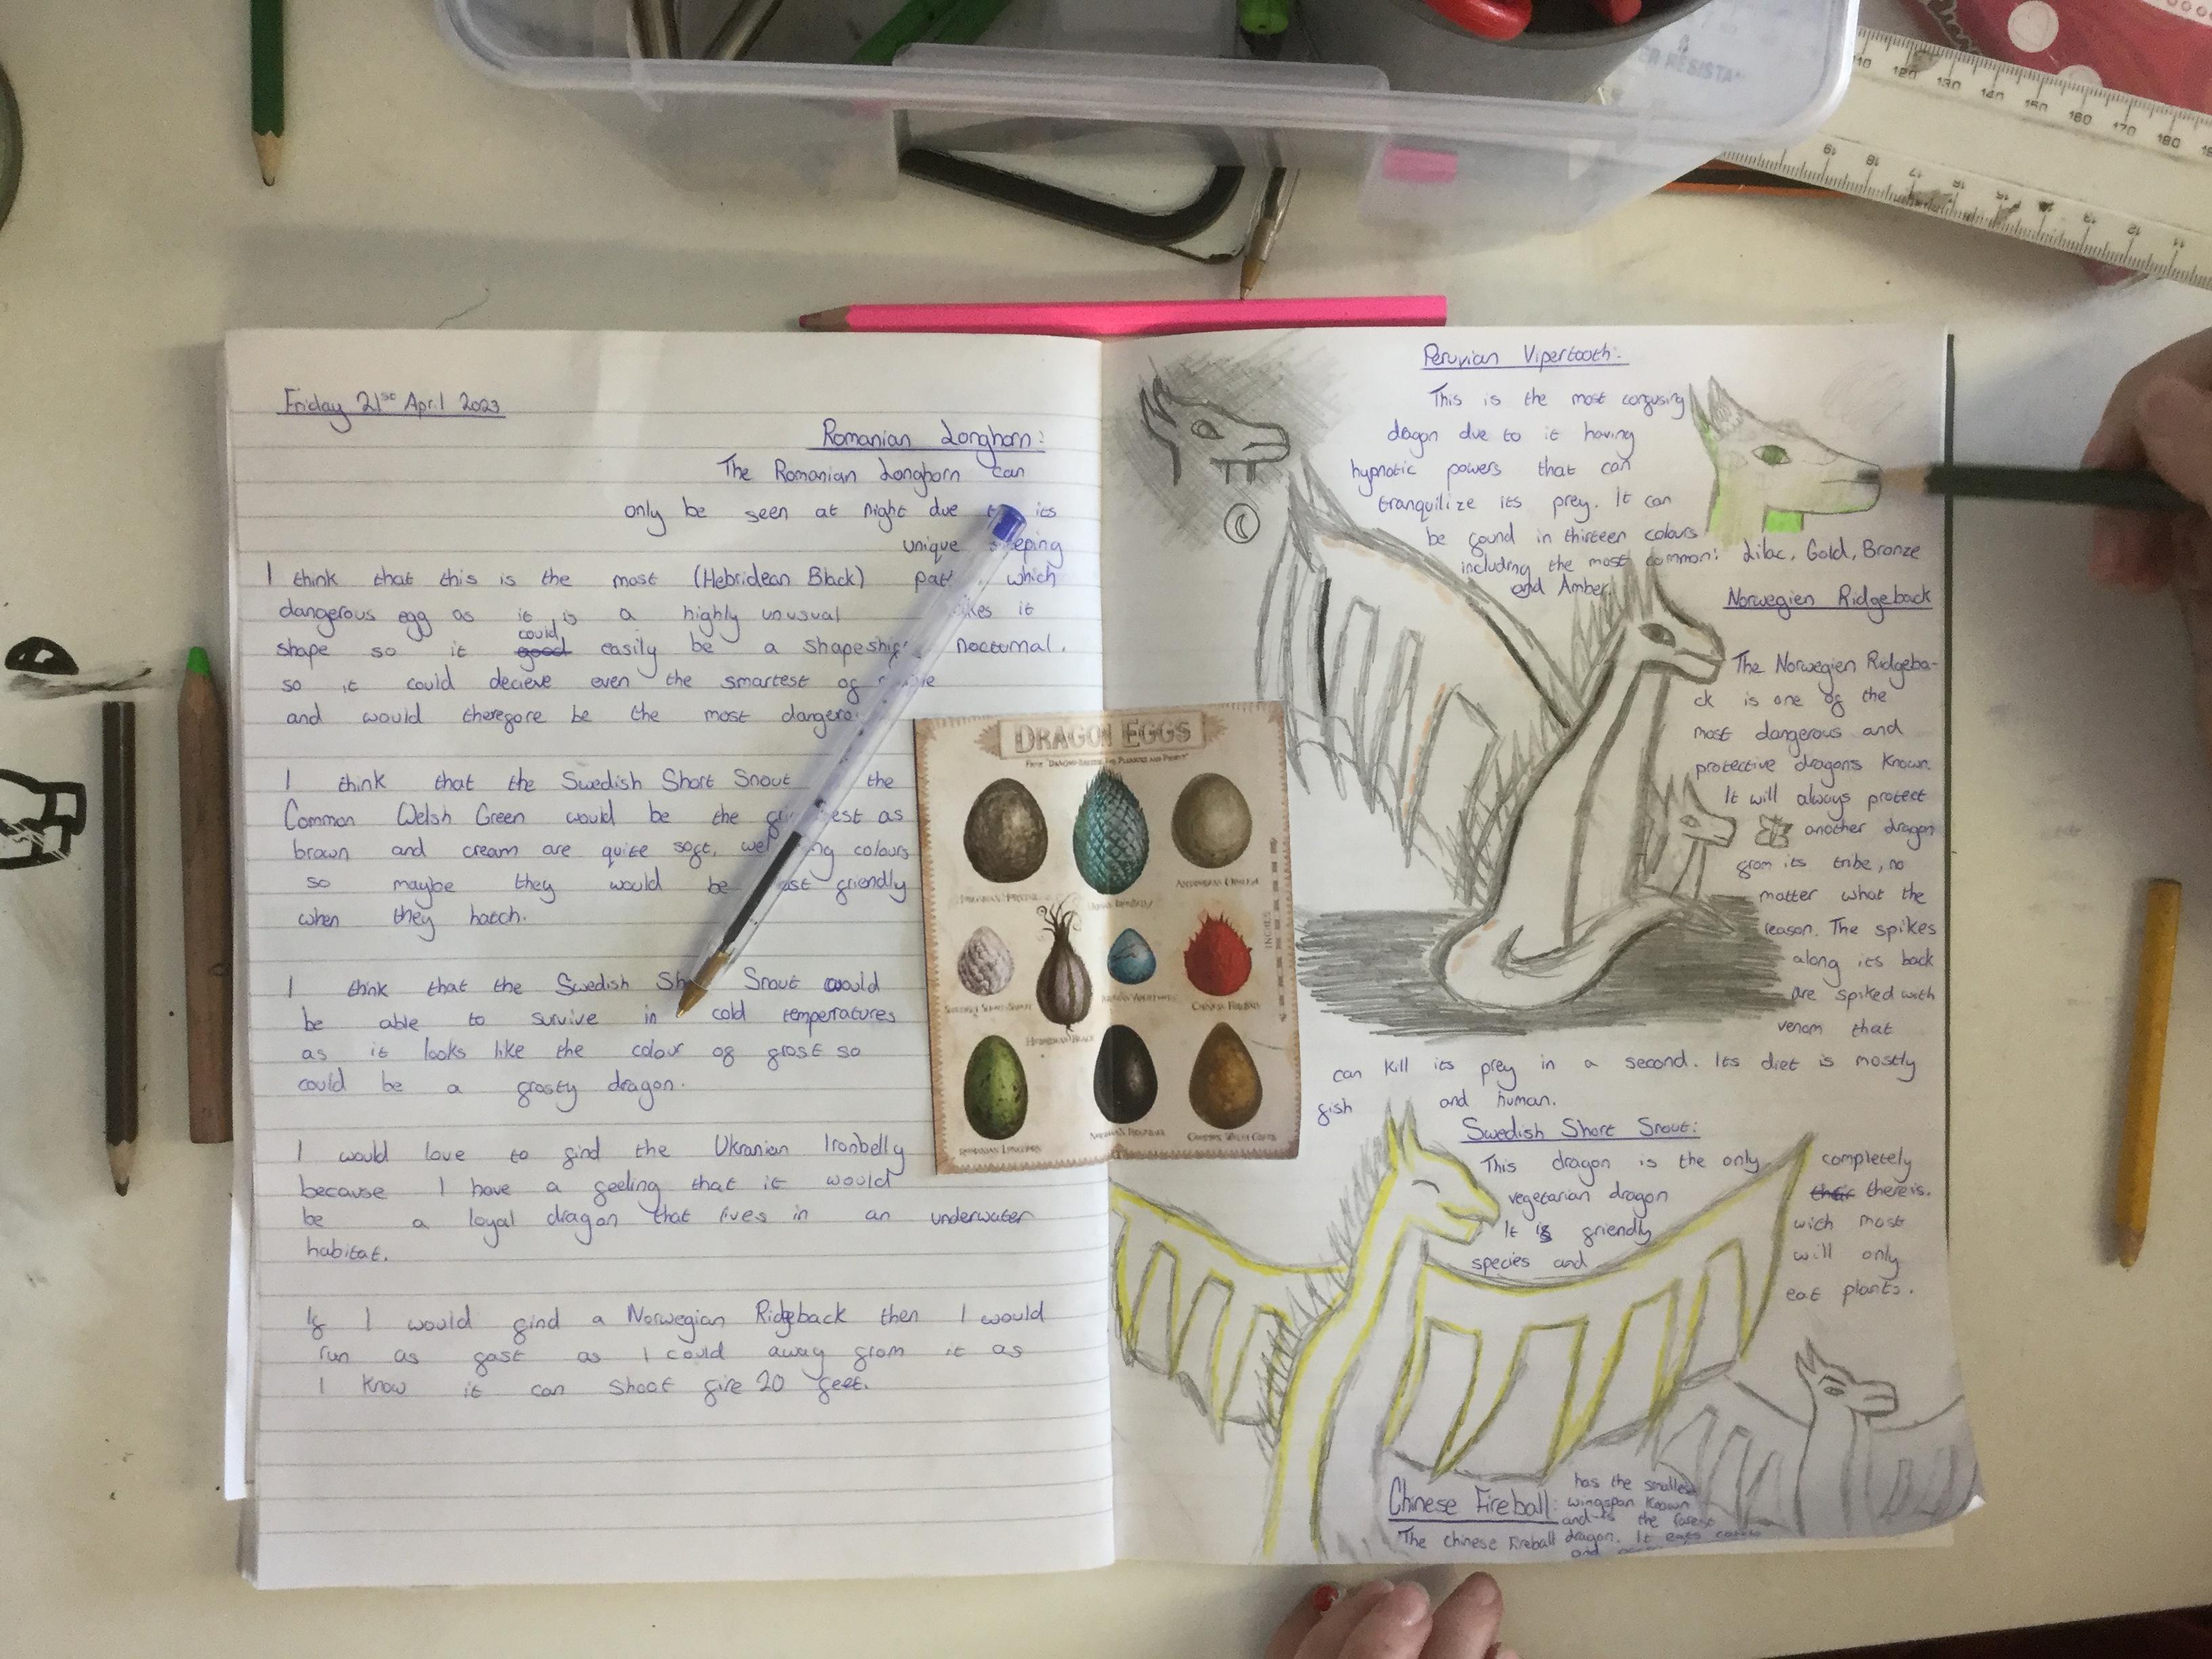 ER RESISTA
110 120 130 140 150 160 170 180
19 18 17 16 15 14 13 12 11
Friday 21st April 2023
Romanian Longhorn:
The Romanian Longhorn can
only be seen at night due its
unique
which
it
nocturnal.
I think that this is the most (Hebridean Black)
dangerous egg as it is a highly unusual
shape so it good could easily be a
so it could decieve even the smartest of
and would therefore be the most
I think that the Swedish Short Snout the
Common Welsh Green would be the as
brown and cream are quite soft, colours
so maybe they would be friendly
when they hatch.
I think that the Swedish Snout would
be able to survive in cold temperatures
as it looks like the colour of frost so
could be a frosty dragon.
I would love to find the Ukranian Ironbelly
because I have a feeling that it would
be a loyal dragon that lives in an underwater
habitat.
If I would find a Norwegian Ridgeback then I would
run as fast as I could away from it as
I know it can shoot fire 20 feet.
DRAGON EGGS
INCHES
Peruvian Vipertooth:
This is the most confusing
dragon due to it having
hypnotic powers that can
tranquilize its prey. It can
be found in thirteen colours
including the most common: Lilac, Gold, Bronze
and Amber.
Norwegien Ridgeback
The Norwegien Ridgeba-
ck is one of the
most dangerous and
protective dragons known.
It will always protect
another dragon
from its tribe, no
matter what the
reason. The spikes
along its back
are spiked with
venom that
can kill its prey in a second. Its diet is mostly
fish and human.
Swedish Short Snout:
This dragon is the only completely
vegetarian dragon there is.
It is friendly with most
species and will only
eat plants.
Chinese Fireball:
The Chinese Fireball
has the smallest
wingspan known
and is the
dragon. It eats
and